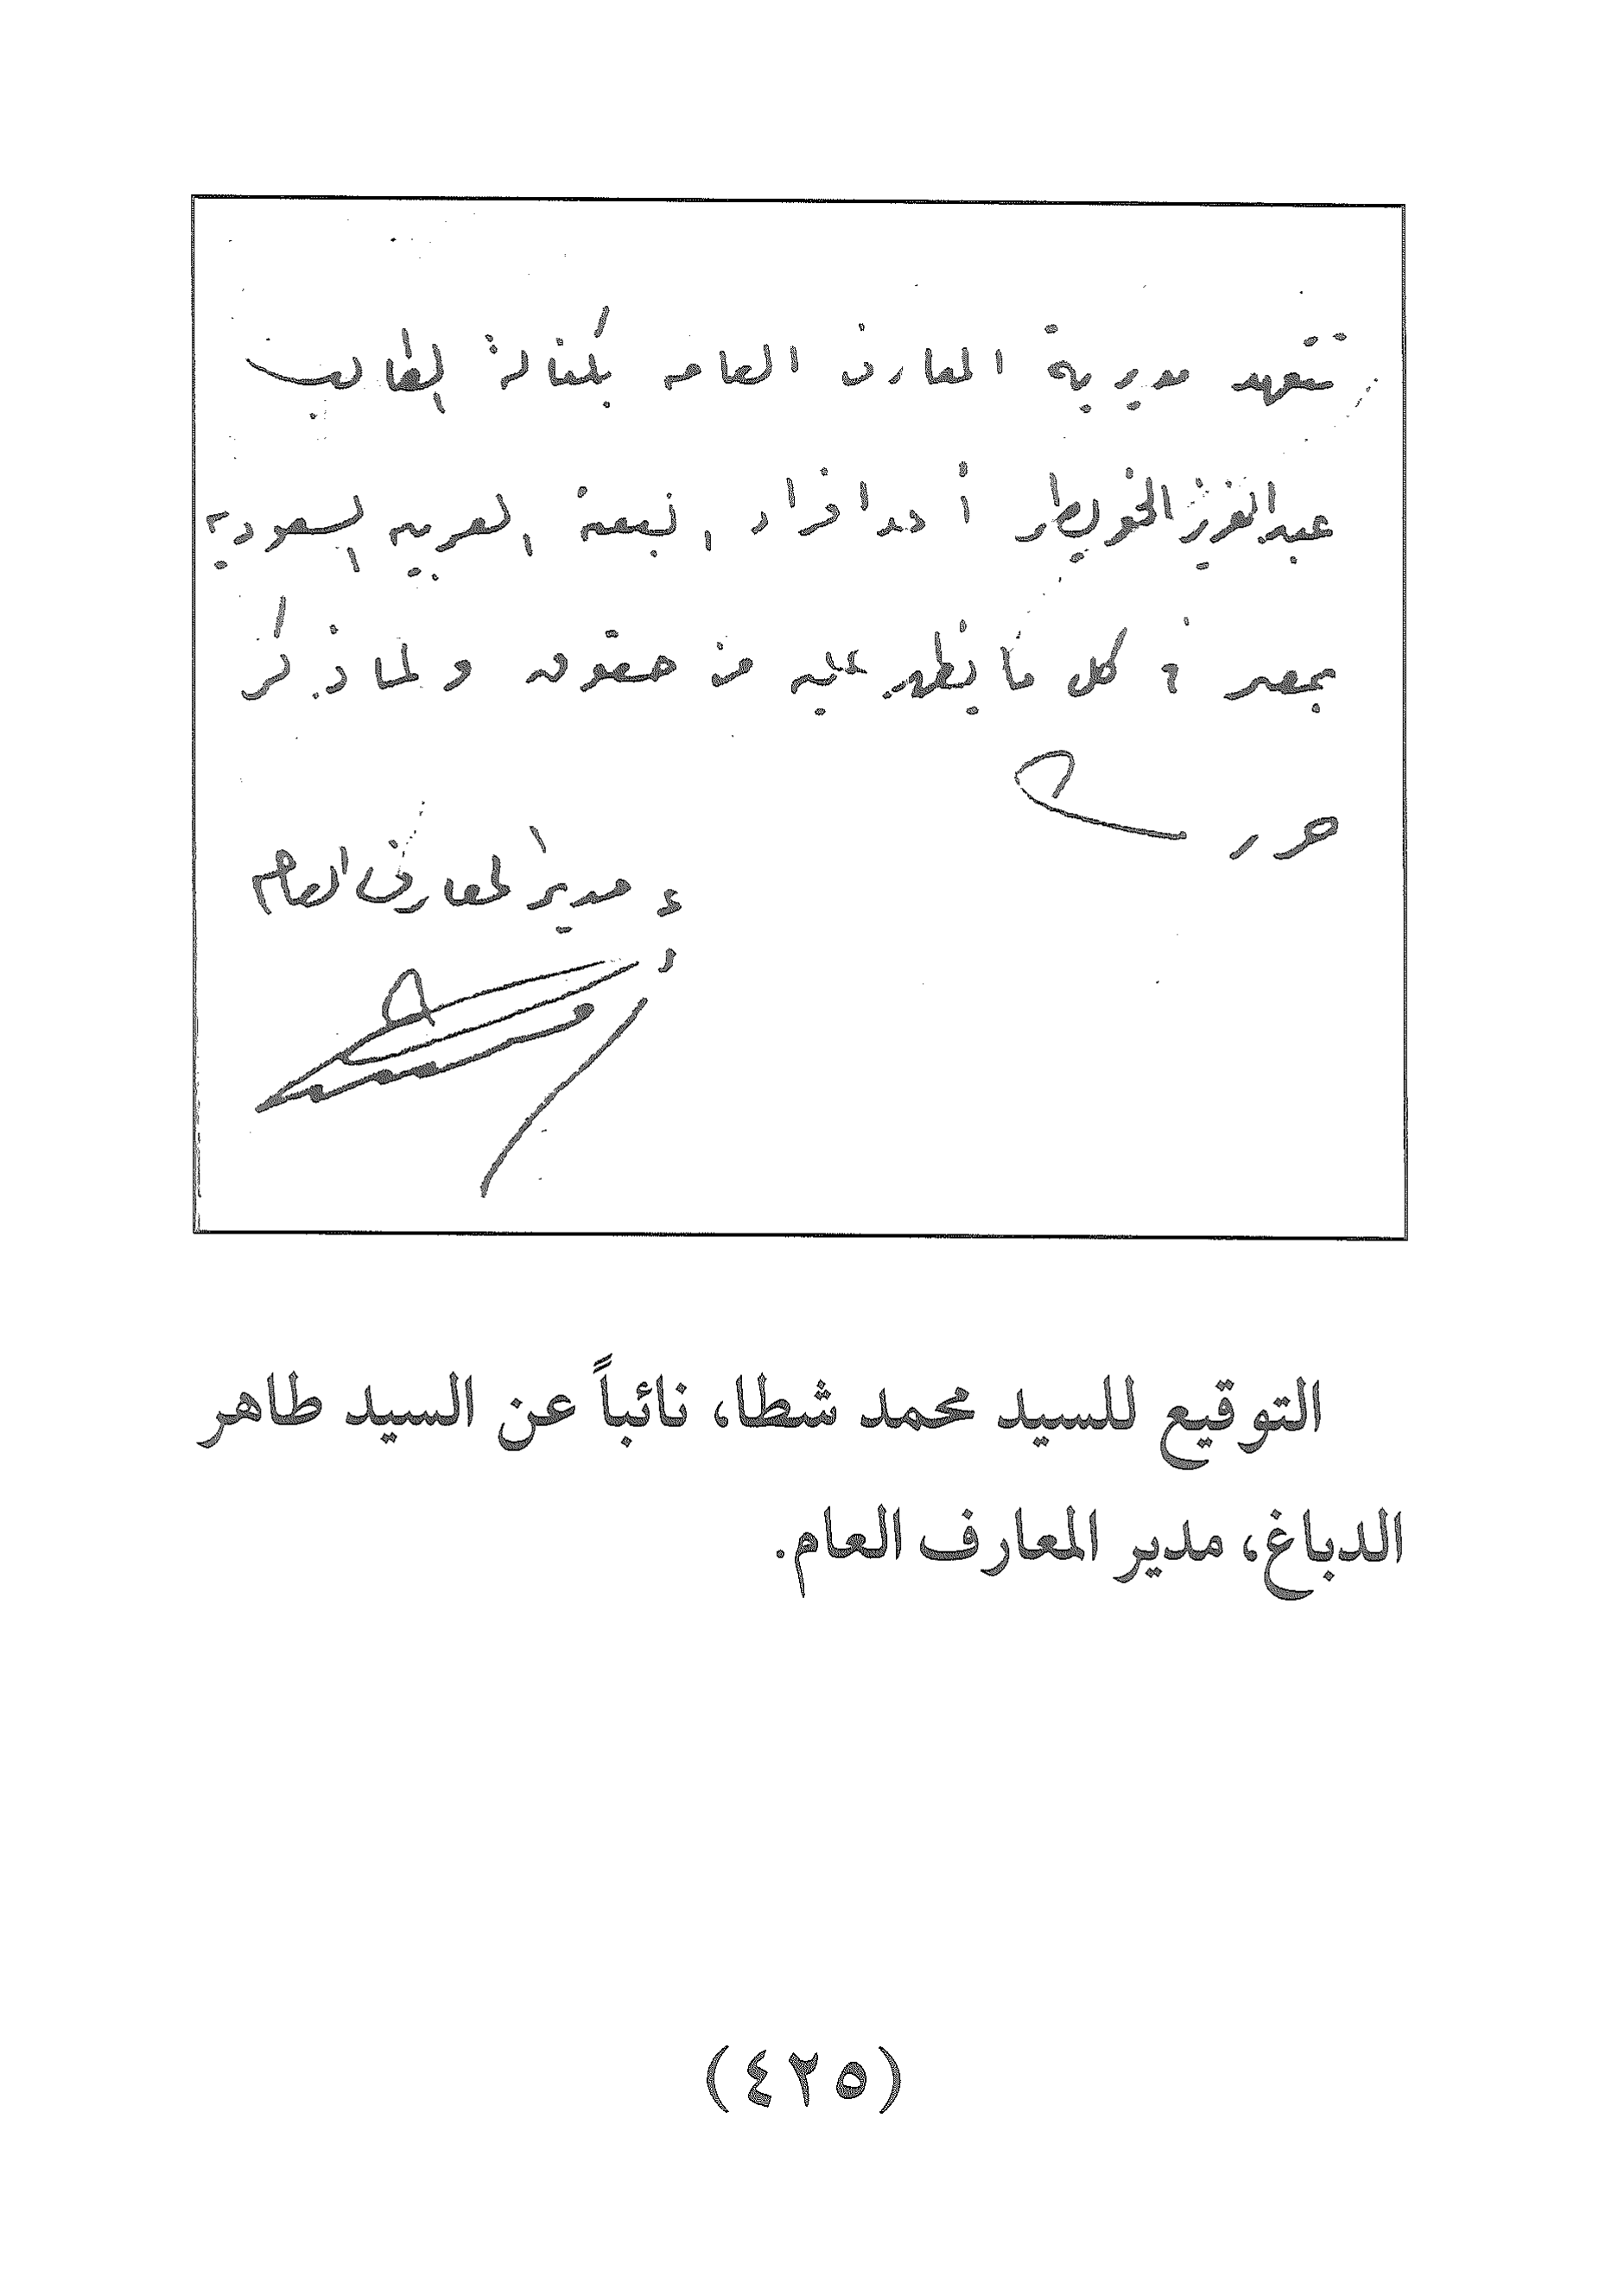 تتعهد مديرية المعارف العامه بكفالة الطالب
عبدالعزيز الخويطر أحد افراد البعثة العربيه السعوديه
بمصر في كل ما يظهر عليه من حقوق ولما ذكر
حرر
ع/ مدير المعارف العام
التوقيع للسيد محمد شطا، نائباً عن السيد طاهر
الدباغ، مدير المعارف العام.
(٤٢٥)